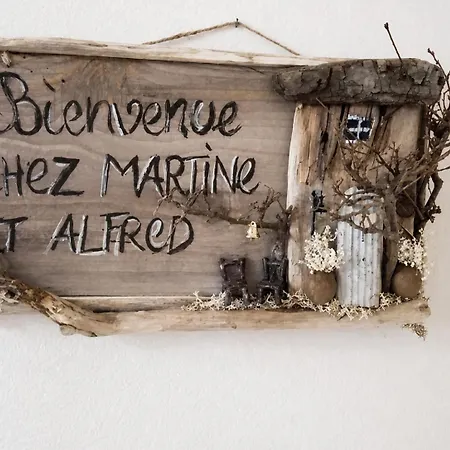 Bienvenue
CHEZ MARTINE
ET ALFRED